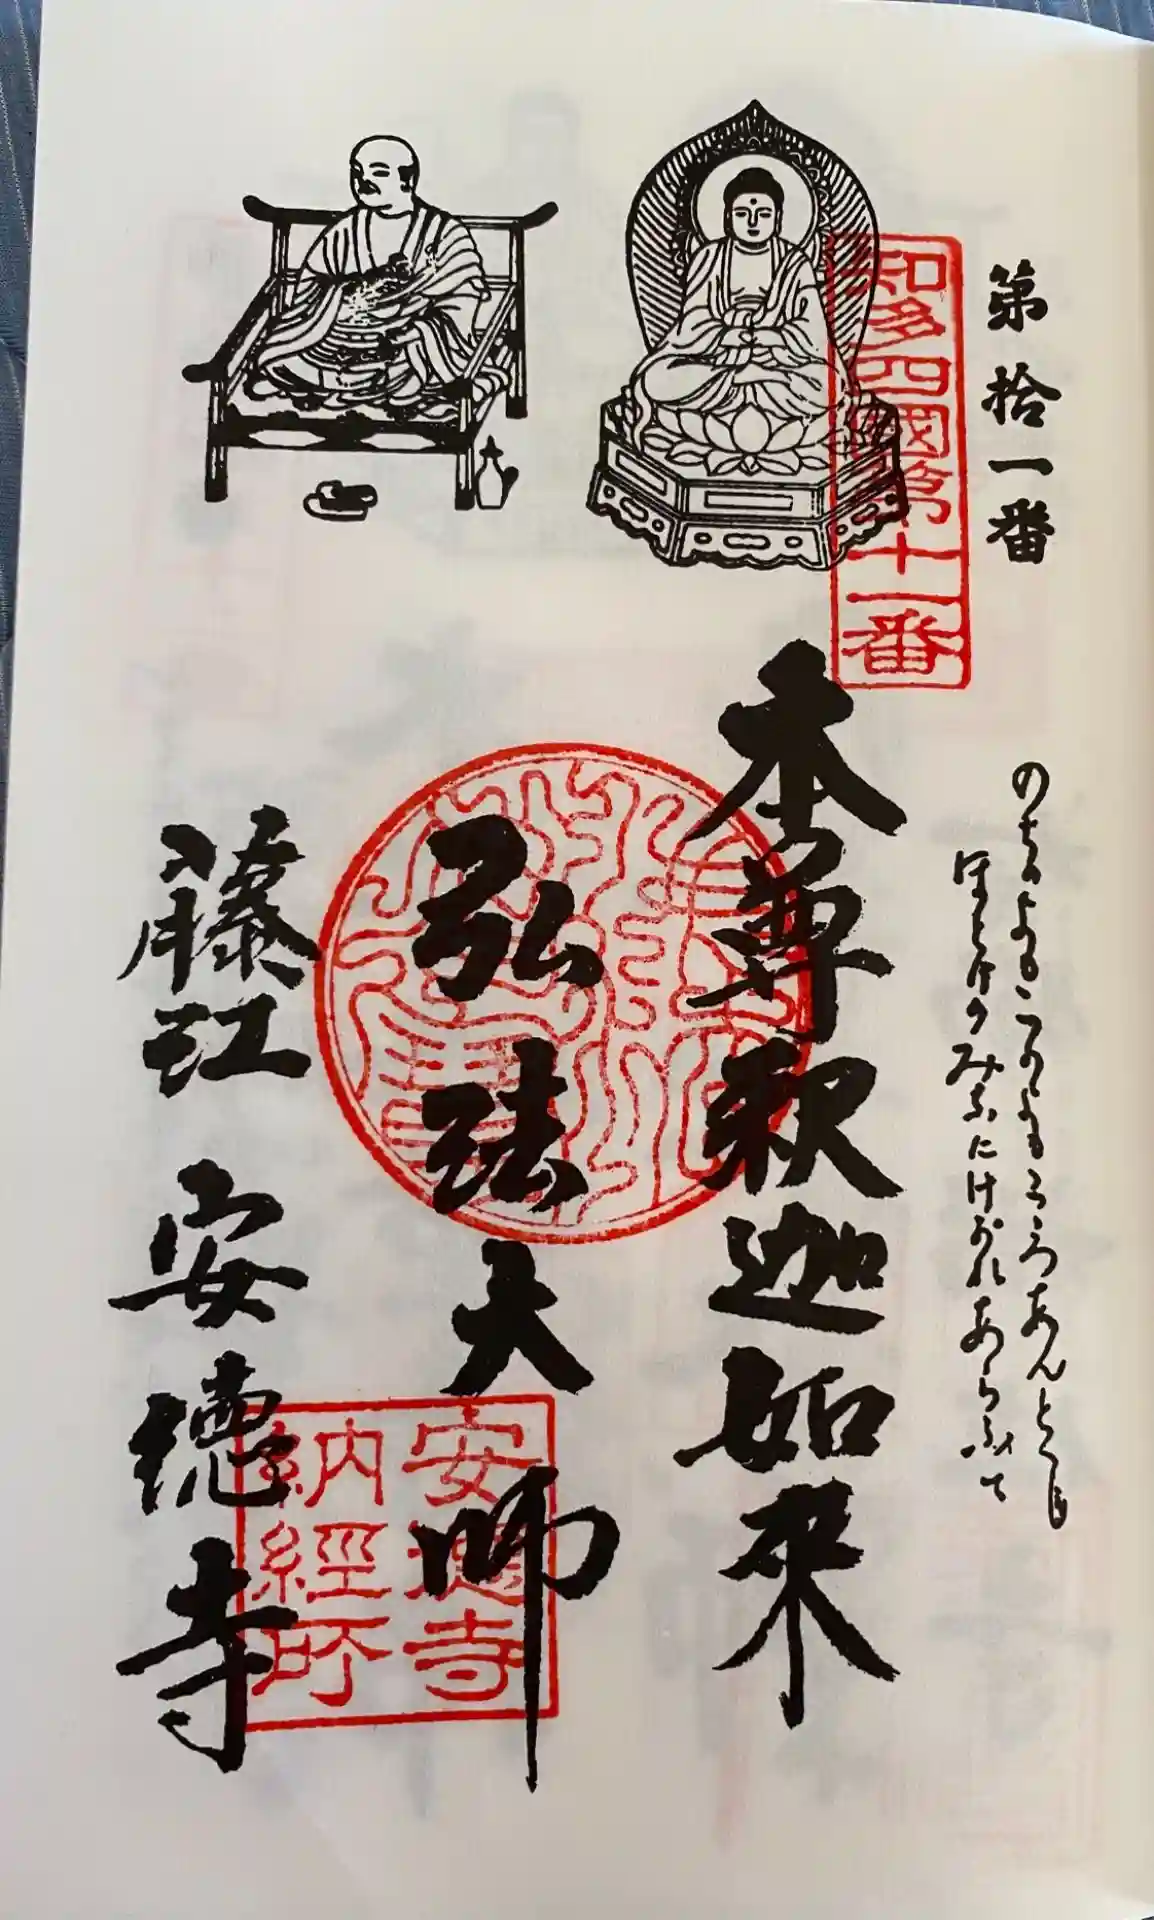 第拾一番
知多四國第十一番
のちのよもこのよもこころあんとくじ
ほとけの にけがれあらふて
本尊釈迦如来
弘法大師
安徳寺
納經所
藤江 安徳寺